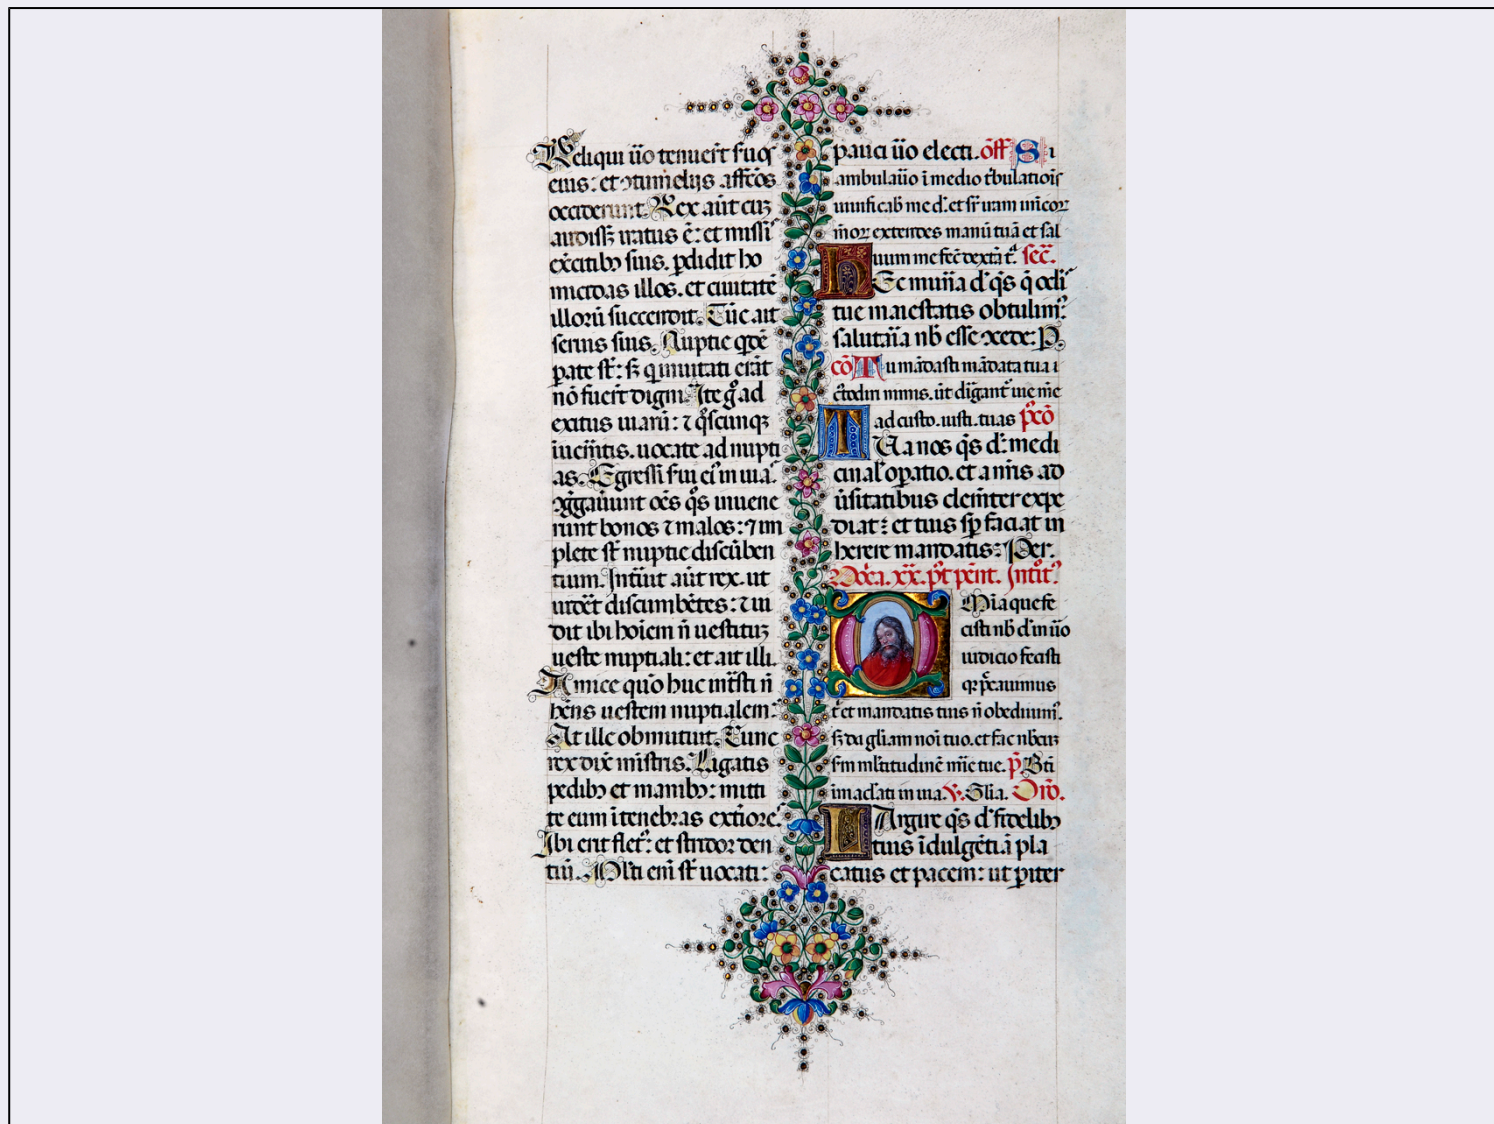 Reliqui u͞o tenuer̄t suos
eius: et ɔtumelijs affc̄os
occiderunt. Rex aūt cuꝫ
audissꝫ iratus ē: et missi
exc̄itibꝰ suis. ꝑdidit ho
micidas illos. et ciuitatē
illorū succendit. Tūc ait
seruis suis. Nuptie qdē
ꝑate st̄: sꝫ q inuitati erāt
nō fuer̄t digni. Ite gͦ ad
exitus uiarū: ⁊ qͦscunqꝫ
iuen̄itis. uocate ad nupti
as. Egressi s̄ui eiꝰ in uias
ɔg̃gauunt oēs qͦs inuene
runt bonos ⁊ malos: ⁊ im
plete st̄ nuptie discūben
tium. Intūit aūt rex. ut
uidēt discumbētes: ⁊ ui
dit ibi hoīem n̄ uestituꝫ
ueste nuptiali: et ait illi.
Amice quō huc intrāsti n̄
hēns uestem nuptialem:
At ille obmutuit. Tunc
rex dix̄ mīstris. Ligatis
pedibꝰ et manibꝰ: mitti
te eum ī tenebras extiore᷒.
Ibi erit flet᷒: et stridor den
tiū. Mlti enī st̄ uocati:
pauci u͞o electi. off̄ Si
ambulauo ī medio t̄bulatiois
uiuificabꝰ me d᷒. et sr̄ uam inicoꝝ
mēoꝝ extendes manū tuā et sal
uum me fec̄ dext̄a t᷒. Sec̄.
Hec mun̄a d᷒ qs̄ q ocli
tue maiestatis obtulim᷒:
salutaīa nb̄ esse ɔcede: P.
cō Tu mādasti mādata tua
c̄todiri nimis. ūt dīgant᷒ uie mē
ad custo. iusti. tuas p̄cō
Tua nos qs̄ d᷒: medi
cinal᷒ oꝑatio. et a n̄ris ad
ūsitatibus clemēter expe
diat: et tuis sꝑ faciat in
herere mandatis: Per.
Doc̄a. xx. p̄t pēnt. Intōit᷒
Omīa que fe
cisti nb̄ d᷒ in u͞o
iudicio fecisti
qꝛ pc̄cauimus
t᷒ et mandatis tuis n̄ obediuim᷒.
sꝫ da gliam noī tuo. et fac nb̄cuꝫ
s̄m ml̄titudinē mīe tue. p̄ Bti
imaclati in uia. v. Glia. Orō.
Largire qs̄ d᷒ fidelibꝰ
tuis īdulgētiā pla
catus et pacem: ut ꝑiter